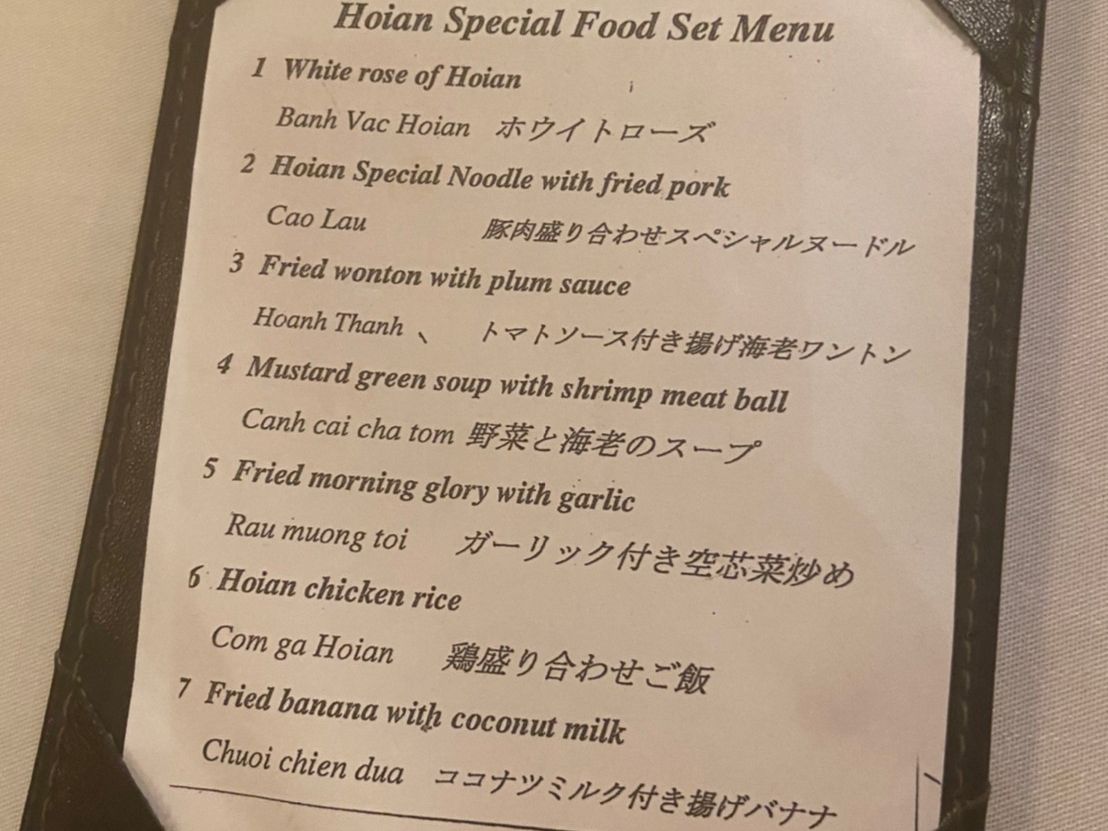 Hoian Special Food Set Menu
1 White rose of Hoian
Banh Vac Hoian ホウイトローズ
2 Hoian Special Noodle with fried pork
Cao Lau 豚肉盛り合わせスペシャルヌードル
3 Fried wonton with plum sauce
Hoanh Thanh 、 トマトソース付き揚げ海老ワントン
4 Mustard green soup with shrimp meat ball
Canh cai cha tom 野菜と海老のスープ
5 Fried morning glory with garlic
Rau muong toi ガーリック付き空芯菜炒め
6 Hoian chicken rice
Com ga Hoian 鶏盛り合わせご飯
7 Fried banana with coconut milk
Chuoi chien dua ココナツミルク付き揚げバナナ